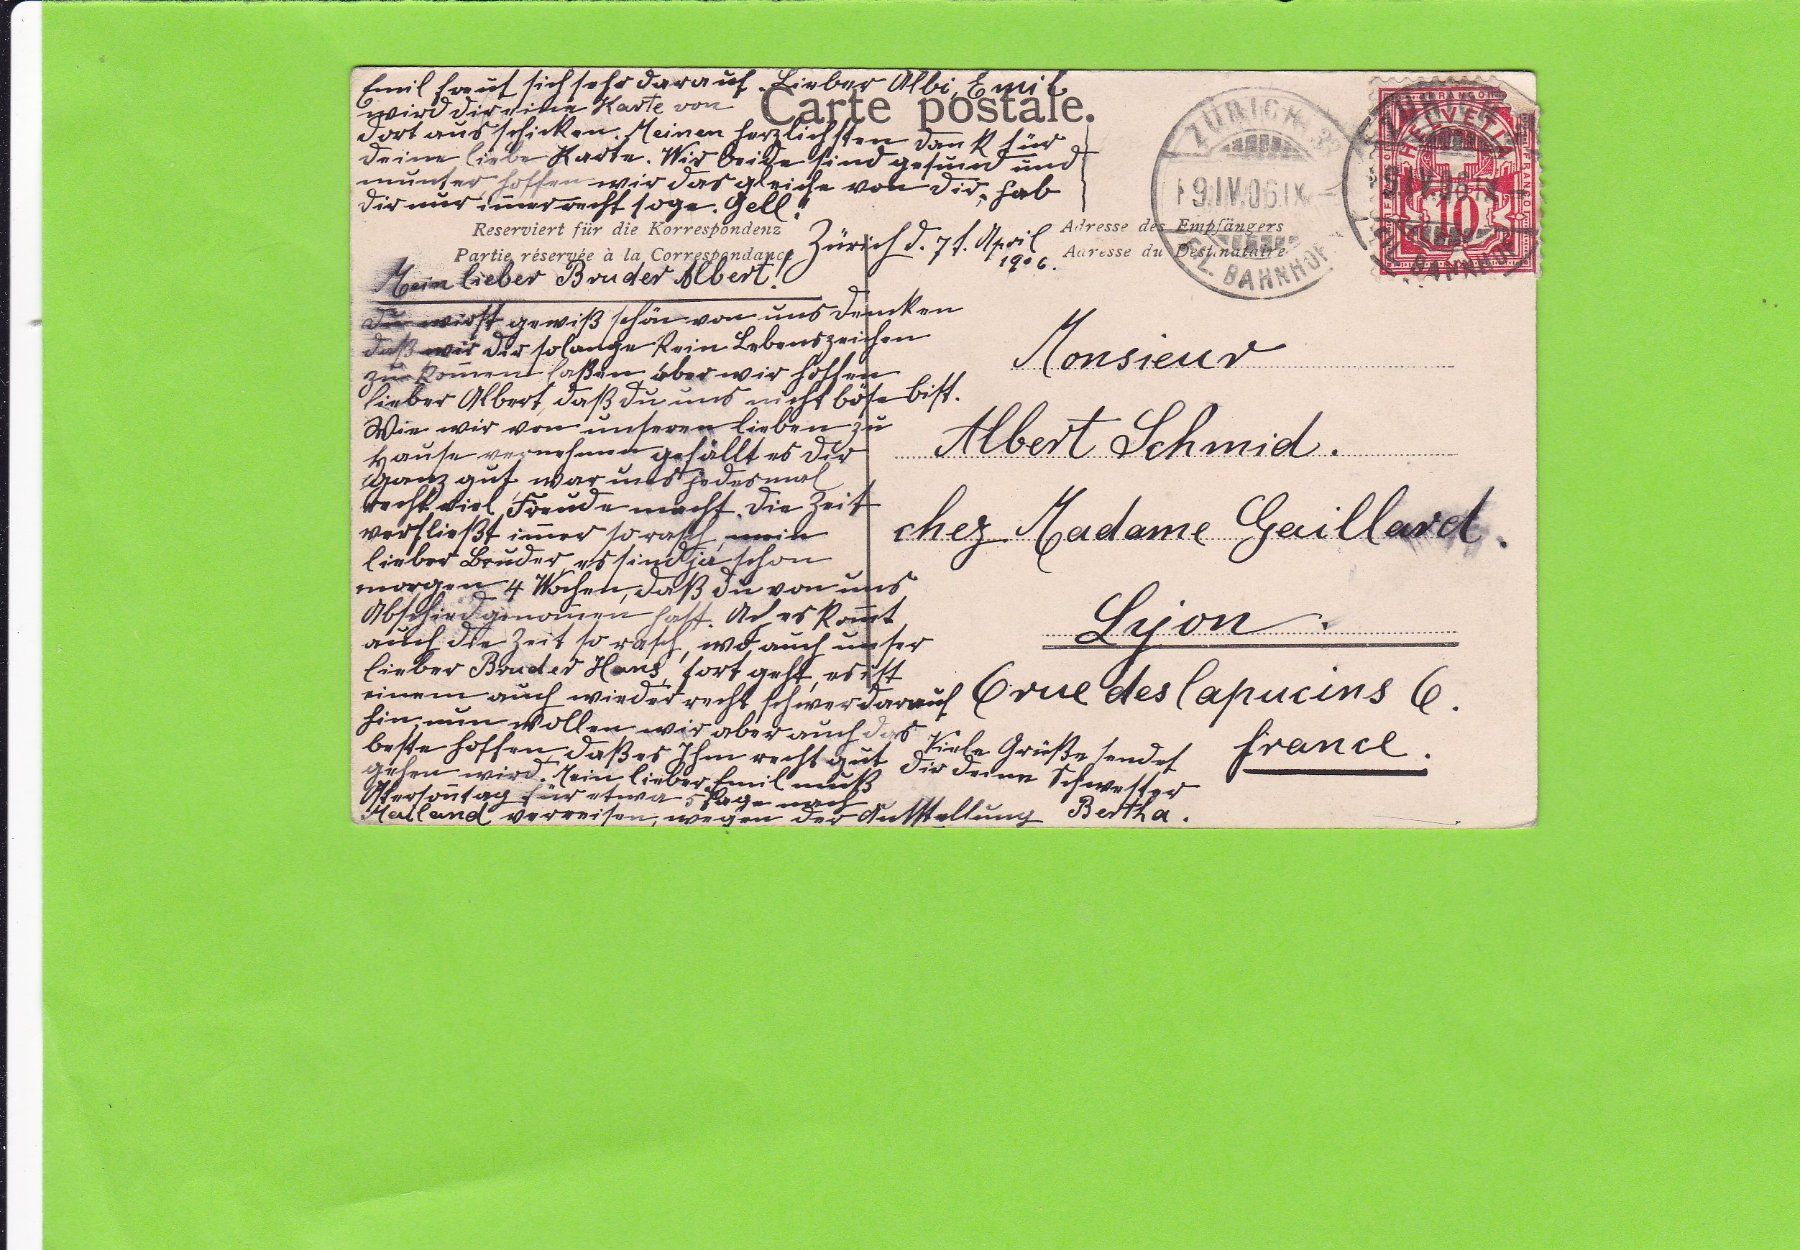 Emil freut sich sehr darauf. Lieber Albi, Emil
wird dir eine Karte von
dort aus schicken. Meinen herzlichsten Dank für
deine liebe Karte. Wir beide sind gesund und
munter, hoffen wir das gleiche von dir, hab
dir nur immer recht soge. Gell!
Carte postale.
Reserviert für die Korrespondenz
Partie réservée à la Correspondance
Zürich d. 7t. April
1906.
Adresse des Empfängers
Adresse du Destinataire
ZÜRICH
9.IV.06.IX
FIL. BAHNHOF
ZÜRICH
9.IV.06.IX
FIL. BAHNHOF
FRANCO
HELVETIA
10
Mein lieber Bruder Albert!
Du wirst gewiß schön von uns dencken
daß wir dir solange kein Lebenszeichen
zu kommen laßen aber wir hoffen
lieber Albert, daß du uns nicht böse bist.
Wie wir von unseren lieben zu
Hause vernehmen gefällt es dir
ganz gut, war uns jedesmal
recht viel Freude macht. Die Zeit
verfließt immer so rasch, mein
lieber Bruder, es sind ja schon
morgen 4 Wochen, daß du von uns
Abschied genommen hast. Ad es kommt
auch die Zeit so rasch, wo auch unser
lieber Bruder Hans, fort geht, es ist
einem auch wieder recht schwer darauf
hin, nun wollen wir aber auch das
beste hoffen, daß es Ihm recht gut
gehen wird. Mein lieber Emil muß
Ostersonntag für etwa 5 Tage nach
Mailand verreisen, wegen der Ausstellung
Viele Grüße sendet
dir deine Schwester
Bertha.
Monsieur
Albert Schmid.
chez Madame Gaillard.
Lyon.
6 rue des Capucins 6.
France.